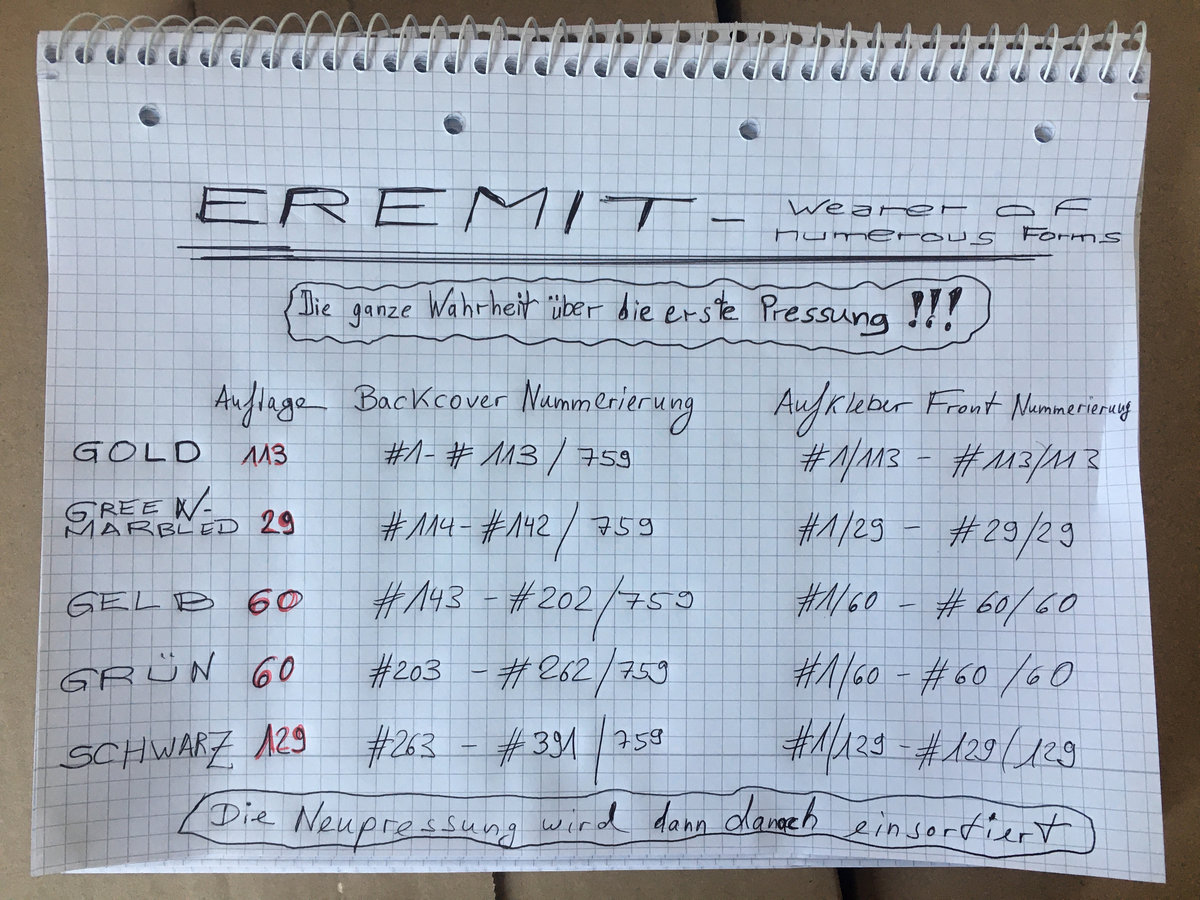 EREMIT - Wearer of
numerous Forms
Die ganze Wahrheit über die erste Pressung !!!
Auflage Backcover Nummerierung Aufkleber Front Nummerierung
GOLD 113 #1 - #113 / 759 #1/113 - #113/113
GREEN-
MARBLED 29 #114 - #142 / 759 #1/29 - #29/29
GELB 60 #143 - #202 / 759 #1/60 - #60/60
GRÜN 60 #203 - #262 / 759 #1/60 - #60/60
SCHWARZ 129 #263 - #391 / 759 #1/129 - #129/129
Die Neupressung wird dann danach einsortiert